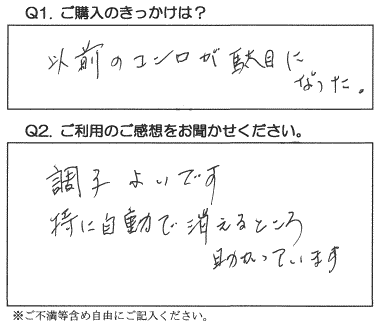 Q1. ご購入のきっかけは？
以前のコンロが駄目に
なった。
Q2. ご利用のご感想をお聞かせください。
調子よいです
特に自動で消えるところ
助かっています
※ご不満等含め自由にご記入ください。